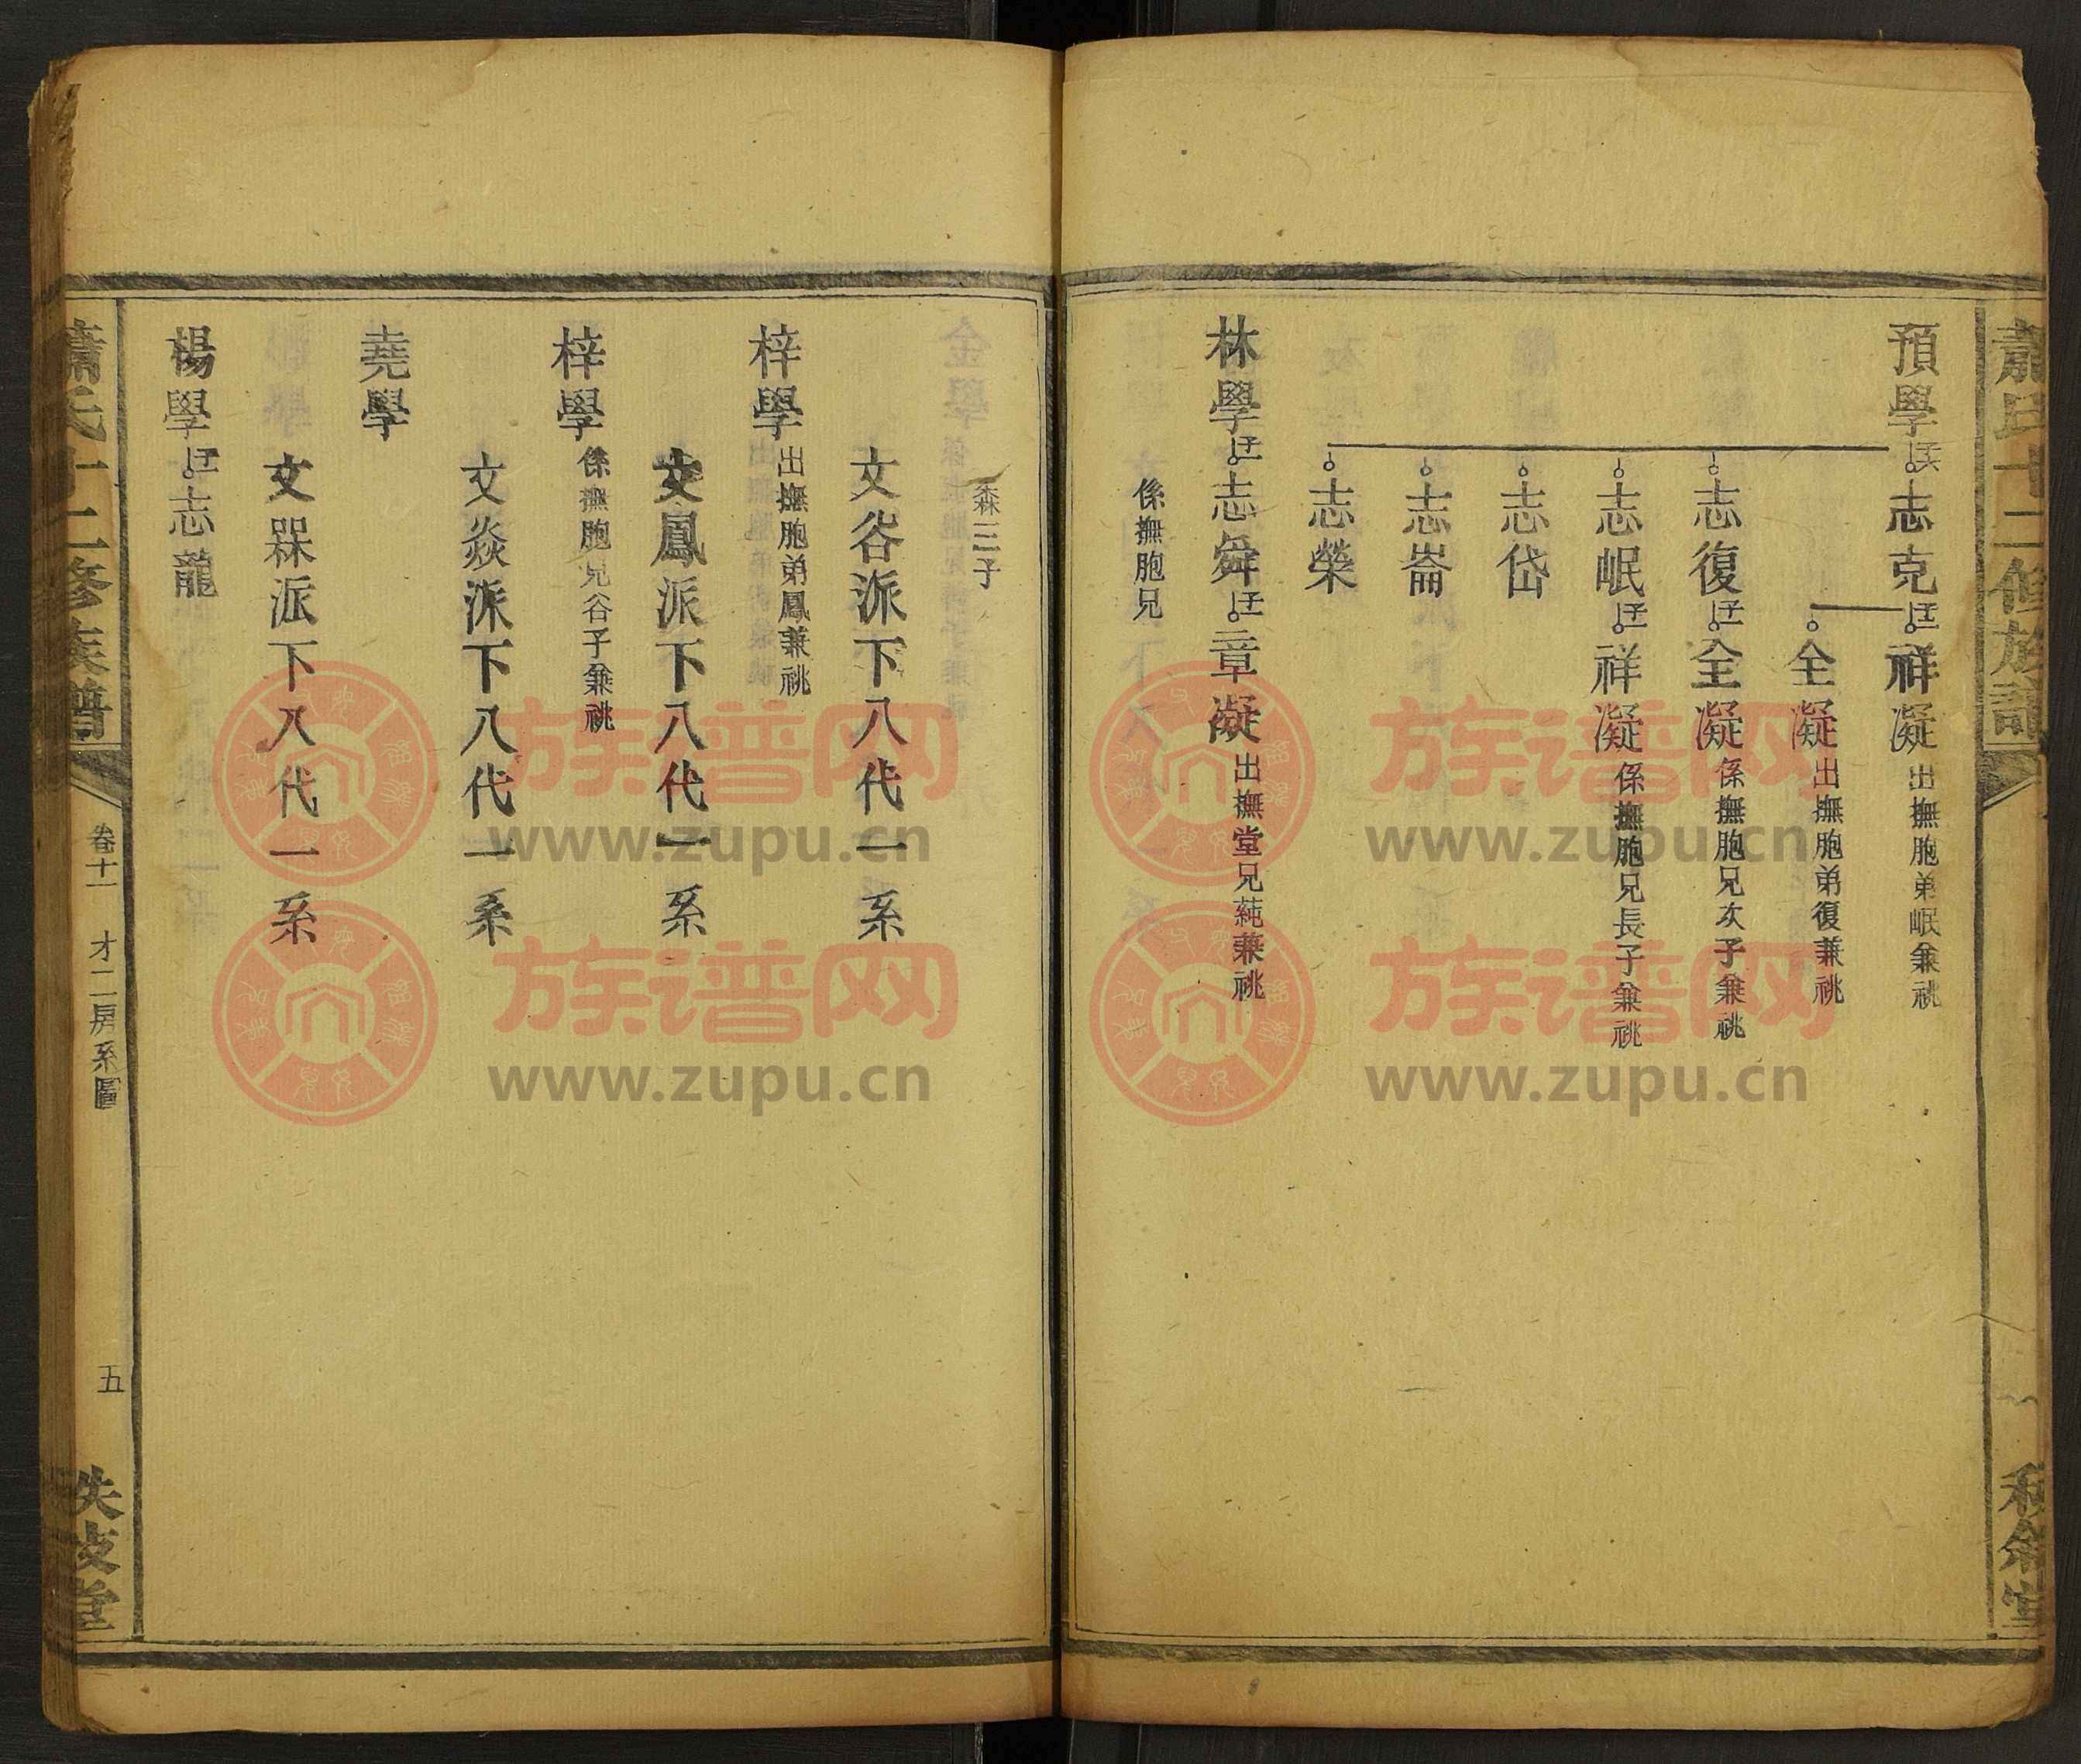 蕭氏十二修族譜
預學 子志克 子祥凝 出撫胞弟岷兼祧
全凝 出撫胞弟復兼祧
志復 子全凝 係撫胞兄次子兼祧
志岷 子祥凝 係撫胞兄長子兼祧
志岱
志崙
志榮
林學 子志舜 子章凝 出撫堂兄蒓兼祧
係撫胞兄
森三子
文谷派下八代一系
梓學 出撫胞弟鳳兼祧
文鳳派下八代一系
梓學 係撫胞兄谷子兼祧
文焱派下八代一系
堯學
文槑派下八代一系
楊學 子志龍
蕭氏十二修族譜
卷十一 才二房系圖
五
族谱网
www.zupu.cn
族谱网
www.zupu.cn
族谱网
www.zupu.cn
族谱网
www.zupu.cn